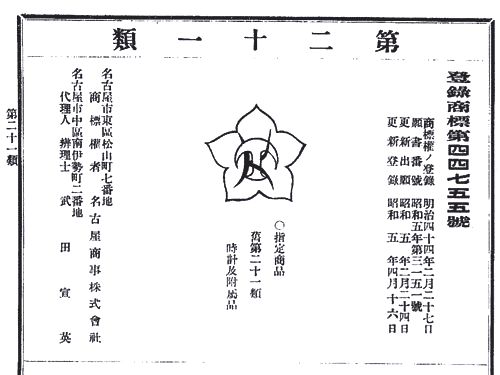 第二十一類
登錄商標第四四七五五號
商標權ノ登錄 明治四十四年二月二十七日
願書番號 昭和五年第三一五一號
更新出願 昭和五年二月二十四日
更新登錄 昭和五年四月十六日
〇指定商品
舊第二十一類
時計及附屬品
名古屋市東區松山町七番地
商標權者 名古屋商事株式會社
名古屋市中區南伊勢町二番地
代理人 辨理士 武田宣英
第二十一類